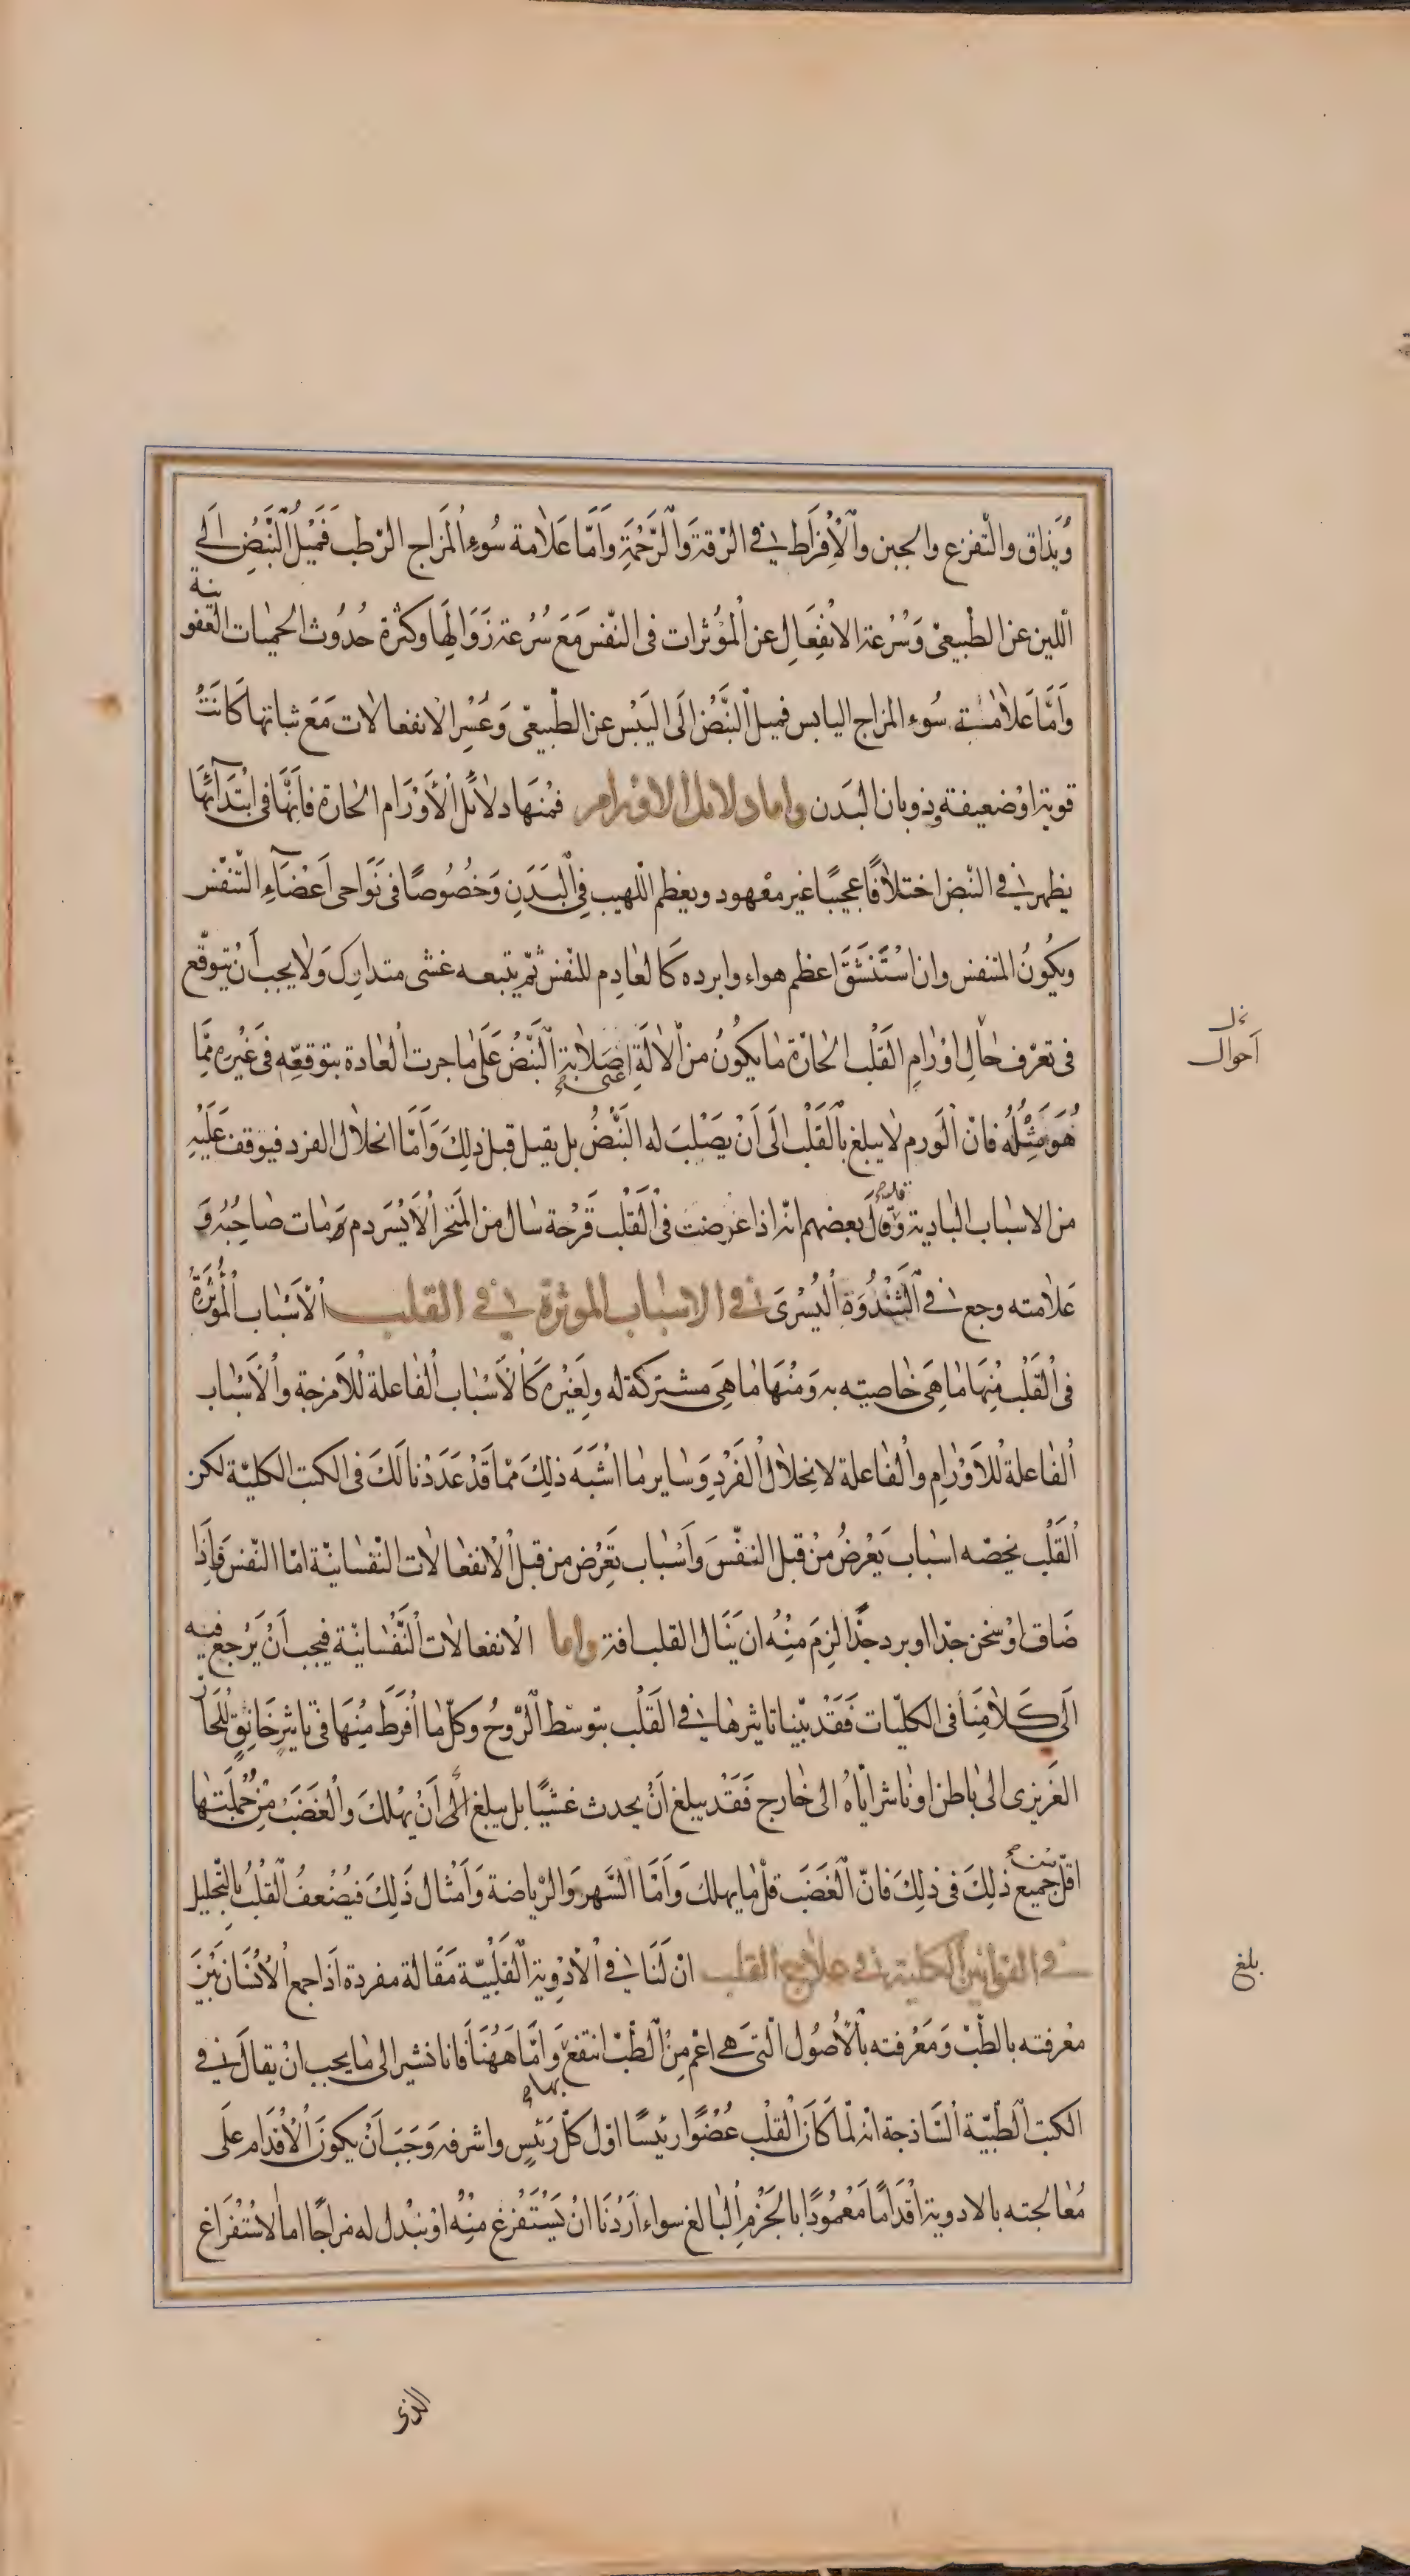 وَيُذاق والتّفزع والجبن وٱلْأِفْرَاط فى الرّقة وَٱلرَّحْمَةِ وَاَمَّا عَلَامة سُوءِ اْلمَزَاج الرّطب فَمَيْلُ اْلنَّبَضِ اِلَى
اللّين عن الطّبيعىّ وَسُرْعة الانْفِعَالِ عن اْلمؤثرات فى النّفس مَعَ سُرعة زَوَالِهَا وكثْرة حُدُوث الحميات العفونية
وَاَمَّا عَلَامَة سُوء المزاج اليابس فميل اْلنَّبَضْ اِلَى اليَبْس عن الطّبيعىّ وَعُسْر الانفعالات مَعَ ثباتها كَانَتْ
قوية اوْ ضعيفة وذوبان البَدَن واما دلائل الاورام فمْنهَا دلَائل اْلأَوْرَام الحارة فاَنّهَا فى ابْتدَآئهَا
يظهر فى النّبض اختلَافًا عجيبًا غير معْهود ويعظم اللّهيب فِى اْلبَدَنِ وَخُصُوصًا فى نَوَاحى اَعْضَآءِ التّنفّس
ويكُونُ المتنفس وان اسْتَنْشَقَ اعظم هواء وابرده كَالعَادِم للنّفس ثمّ يتبعه غشى متدارك وَلا يجب أنْ يتوقّع
فى تعرّف حَالِ اوْرَامِ القَلْب الحَارّة مَا يكُونُ من اْلَالَةِ اعنى صَلَابة اْلنَّبَضُ عَلَى مَا جرت الْعَادة بتوقعّه فى غَيْره مِمَّا
هُوَ مِثْلُهُ فانّ اْلوَرم لا يبلغ بِالْقَلْب اِلَى أَنْ يَصْلبَ له النَّبْضُ بل يقبل قبل ذلِكَ وَاَمَّا انحلَال الفرد فيوقف عَلَيْهِ
من الاسبَاب البَادية وقَالَ بعضهم انّه اذا عَرضت فى اْلقَلْب قَرْحة سَال من المَنْخر اْلَايْسَر دم ومَات صَاحِبُه وَ
عَلَامته وجع فى اْلثَنْدُوَةِ اْليُسْرَى فى الاسباب الموثرة فى القلب الْاَسْبَاب الْمُؤثِرَة
فى اْلقَلْب مِنهَا مَا هِىَ خَاصيته به وَمْنهَا مَا هِىَ مشتركة له ولِغَيْره كَالْاَسْبَاب الْفَاعلة لْلَامزجة وَالْاَسْبَاب
الْفَاعلة لْلَاوْرَامِ والْفَاعلة لانِحْلَال الْفَرْدِ وَسَاير مَا اشْبَهَ ذلِكَ ممّا قَدْ عَدَدْنا لَكَ فى الكتب الكليّة لكن
الْقَلْب يخصّه اسبَاب يَعْرضُ مِنْ قبل النّفْسَ وَاَسْبَاب تَعْرُض من قبل الْانفعَالَات النّفسَانيّة امّا النّفس فَإِذَا
ضَاق اوْ سَخن جدّا او برد جدًّا لزِمَ مِنْهُ ان يَنَال القلب افة واما الْانفعالَات النَّفْسَانيّة فيجب اَنْ يَرْجع فيه
اِلَى كَلَامِنَا فى الكليّات فَقَدْ بيّنا تاثيرهَا فى القَلْب بتوسّط الرّوحُ وكلّ مَا اَفْرَطَ مِنْهَا فى تاثيرِ خَانِقٍ لْلحَارِّ
الغَريزى الى بَاطن او نَاشر ايّاهُ الى خَارج فَقَدْ يبلغ اَنْ يحدث غشيًا بل يبلغ الَى اَنْ يهْلكَ والْغَضَبَ مِنْ جُمْلَتِهَا
اقلّ جَميع ذلِكَ فى ذلِكَ فانّ اْلغَضَبَ قلّ مَا يهلكَ وَاَمّا السّهر وَالرّياضة وَاَمْثال ذَلِكَ فيُضْعفُ اْلقَلْب بِالتّحليل
فى القوانين الكلية فى علاج القلب انّ لَنَا فى اْلَادْوِية اْلقَلْبِيّة مَقَالة مفردة اذَا جمع اْلاِنْسَان بَيْنَ
معْرفته بالطّب وَمَعْرفته بالْاُصُول الّتى هى اعْم مِنْ الطّبّ انتفع بها وَاَمّا هَهُنَا فَانا نشير الى مَا يجب انْ يقالَ فى
الكتب اْلطّبيّة السّاذجة انّه لمّا كَانَ اْلقَلْب عُضْوًا رئيسًا اوّل كلّ رَئيسٍ واشرفه وَجَبَ اَنْ يكونَ الْاِقْدَام عَلَى
مُعَالجته بالادوية اقْدَامًا مَعْمُودًا بالْجَزْمِ الْبَالغ سواء اَرَدْنَا انْ يَسْتَفْرغ مِنْهُ اوْ نبْدل له مزاجًا اما الاسْتفْرَاغ
احوال
بلغ
الذى